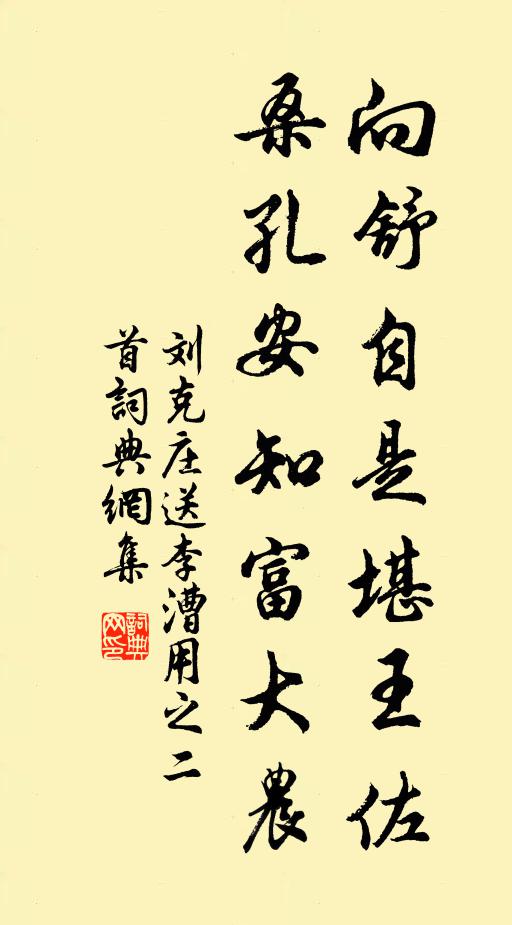 向舒自是堪王佐
桑孔安知富大農
刘克庄送李漕用之二
首詞典網集
詞典
网印